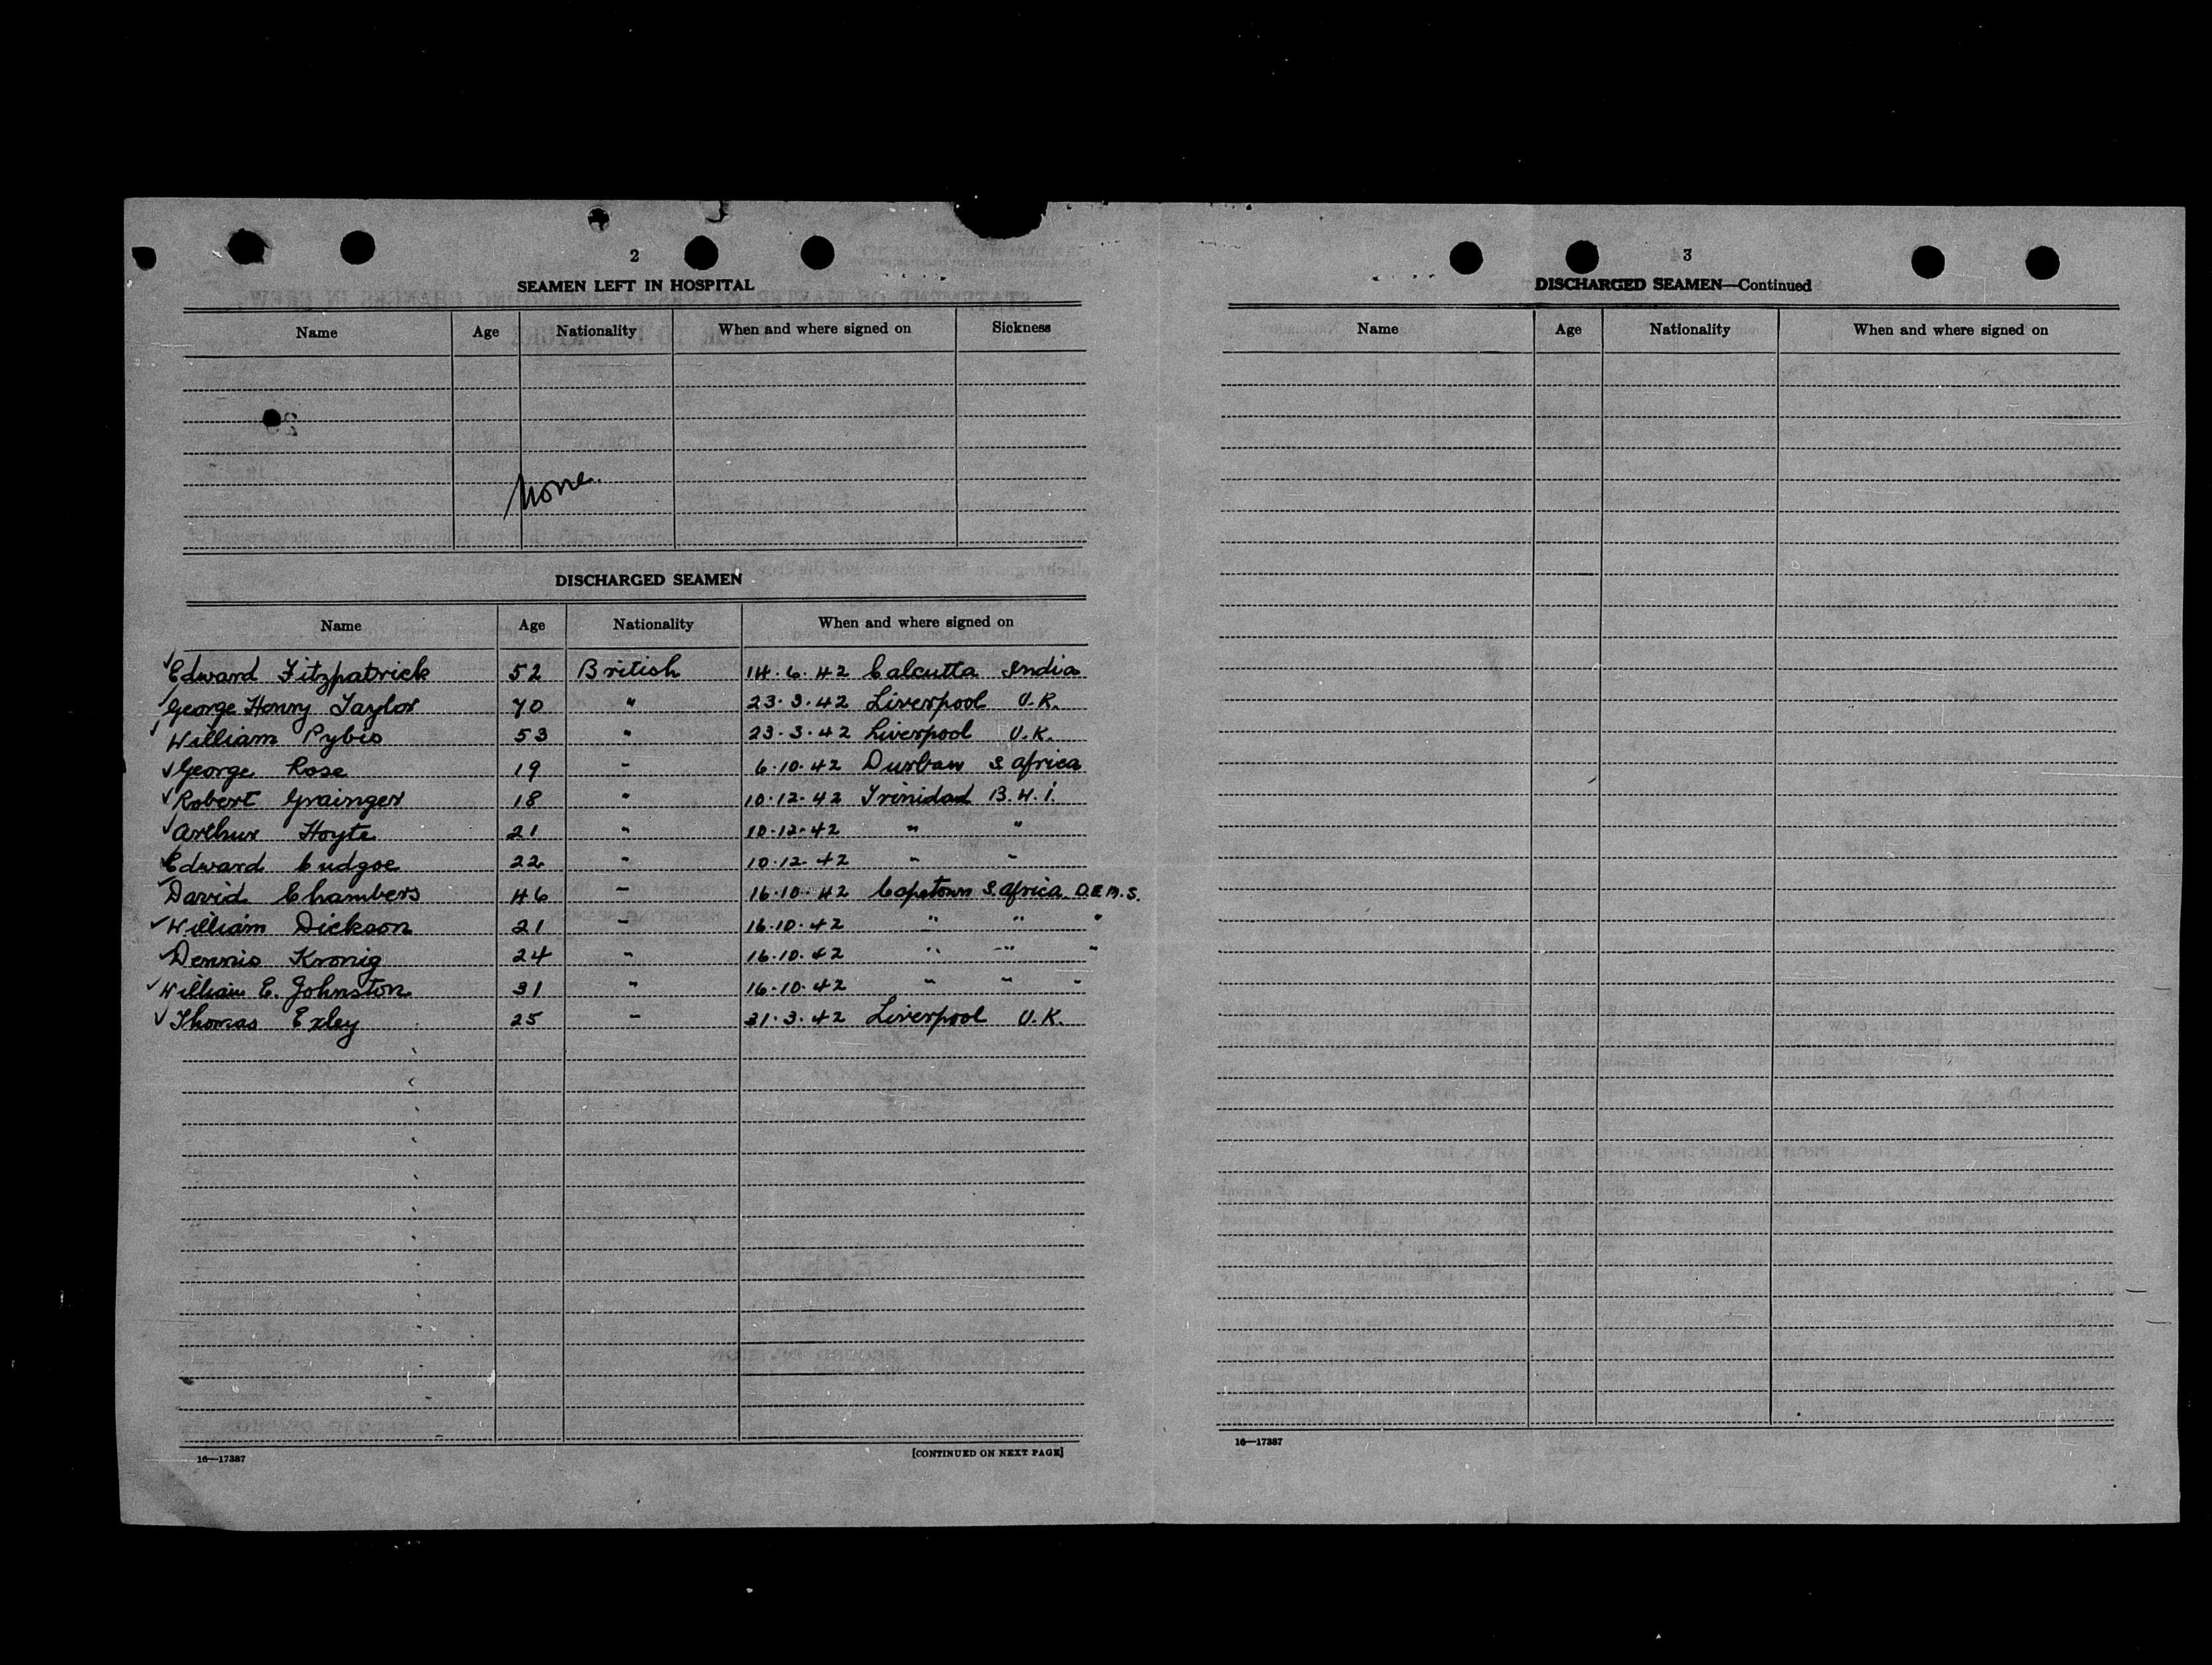 2
SEAMEN LEFT IN HOSPITAL
Name Age Nationality When and where signed on Sickness
None.
DISCHARGED SEAMEN
Name Age Nationality When and where signed on
Edward Fitzpatrick 52 British 14.6.42 Calcutta India
George Henry Taylor 70 " 23.3.42 Liverpool U.K.
William Pybis 53 " 23.3.42 Liverpool U.K.
George Rose 19 " 6.10.42 Durban S. Africa
Robert Grainger 18 " 10.12.42 Trinidad B.W.I.
Arthur Hoyte 21 " 10.12.42 " "
Edward Cudgoe 22 " 10.12.42 " "
David Chambers 46 " 16.10.42 Capetown S. Africa D.E.M.S.
William Dickson 21 " 16.10.42 " " "
Dennis Kronig 24 " 16.10.42 " " "
William E. Johnston 31 " 16.10.42 " " "
Thomas Exley 25 " 31.3.42 Liverpool U.K.
16—17387 [CONTINUED ON NEXT PAGE]
3
DISCHARGED SEAMEN—Continued
Name Age Nationality When and where signed on
16—17387